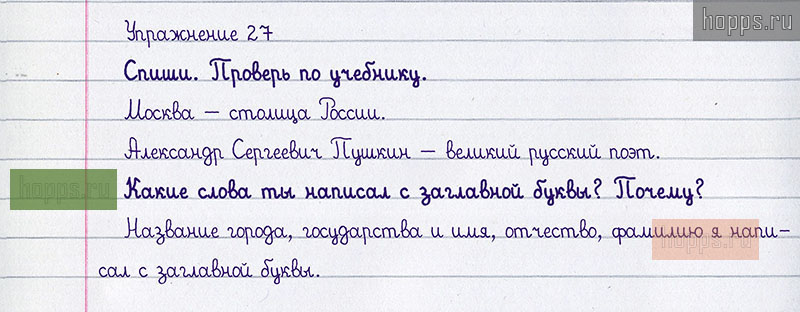 hopps.ru
Упражнение 27
Спиши. Проверь по учебнику.
Москва — столица России.
Александр Сергеевич Пушкин — великий русский поэт.
hopps.ru
Какие слова ты написал с заглавной буквы? Почему?
Название города, государства и имя, отчество, фамилию я напи-
hopps.ru
сал с заглавной буквы.